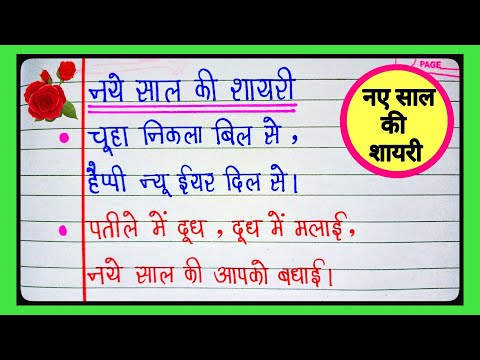 PAGE
नये साल की शायरी
चूहा निकला बिल से ,
हैप्पी न्यू ईयर दिल से।
पतीले में दूध , दूध में मलाई ,
नये साल की आपको बधाई।
नए साल
की
शायरी